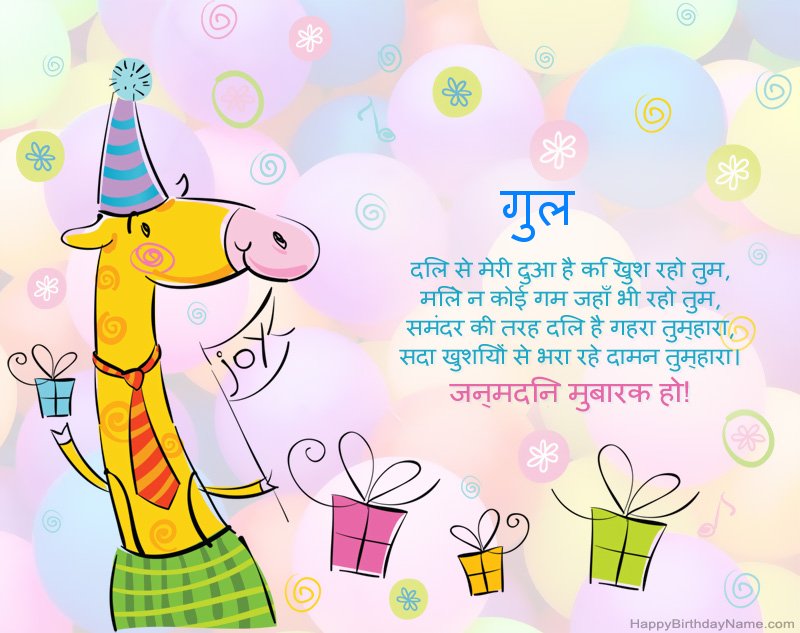 joy
गुल
दलि से मेरी दुआ है कि खुश रहो तुम,
मलिे न कोई गम जहाँ भी रहो तुम,
समंदर की तरह दलि है गहरा तुम्हारा,
सदा खुशयिों से भरा रहे दामन तुम्हारा।
जन्मदनि मुबारक हो!
HappyBirthdayName.com